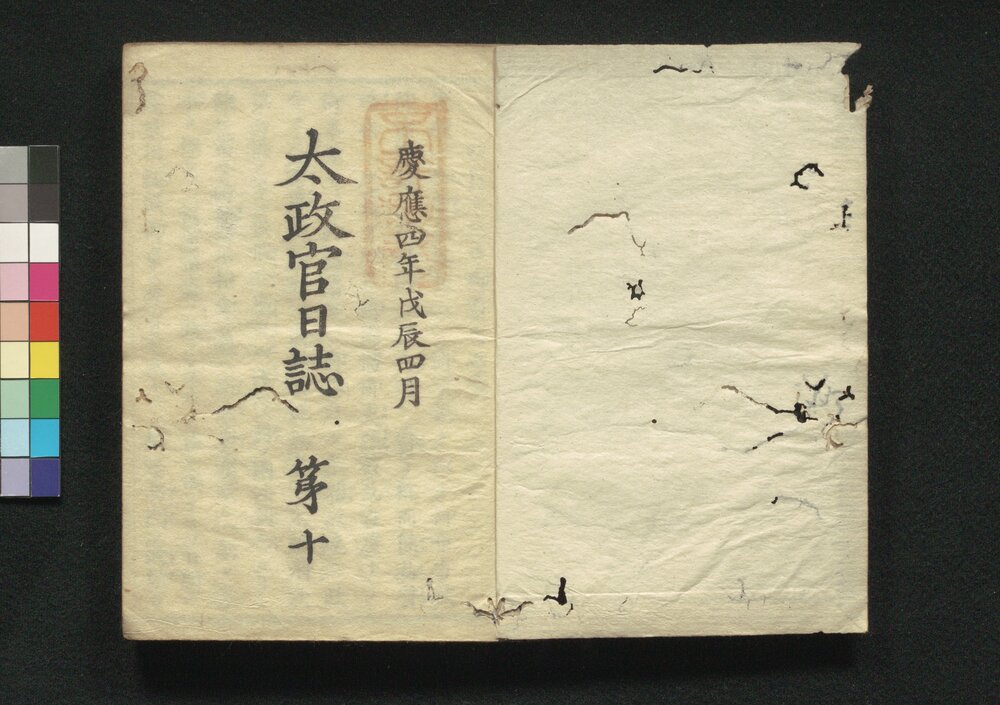 慶應四年戊辰四月
太政官日誌 第十